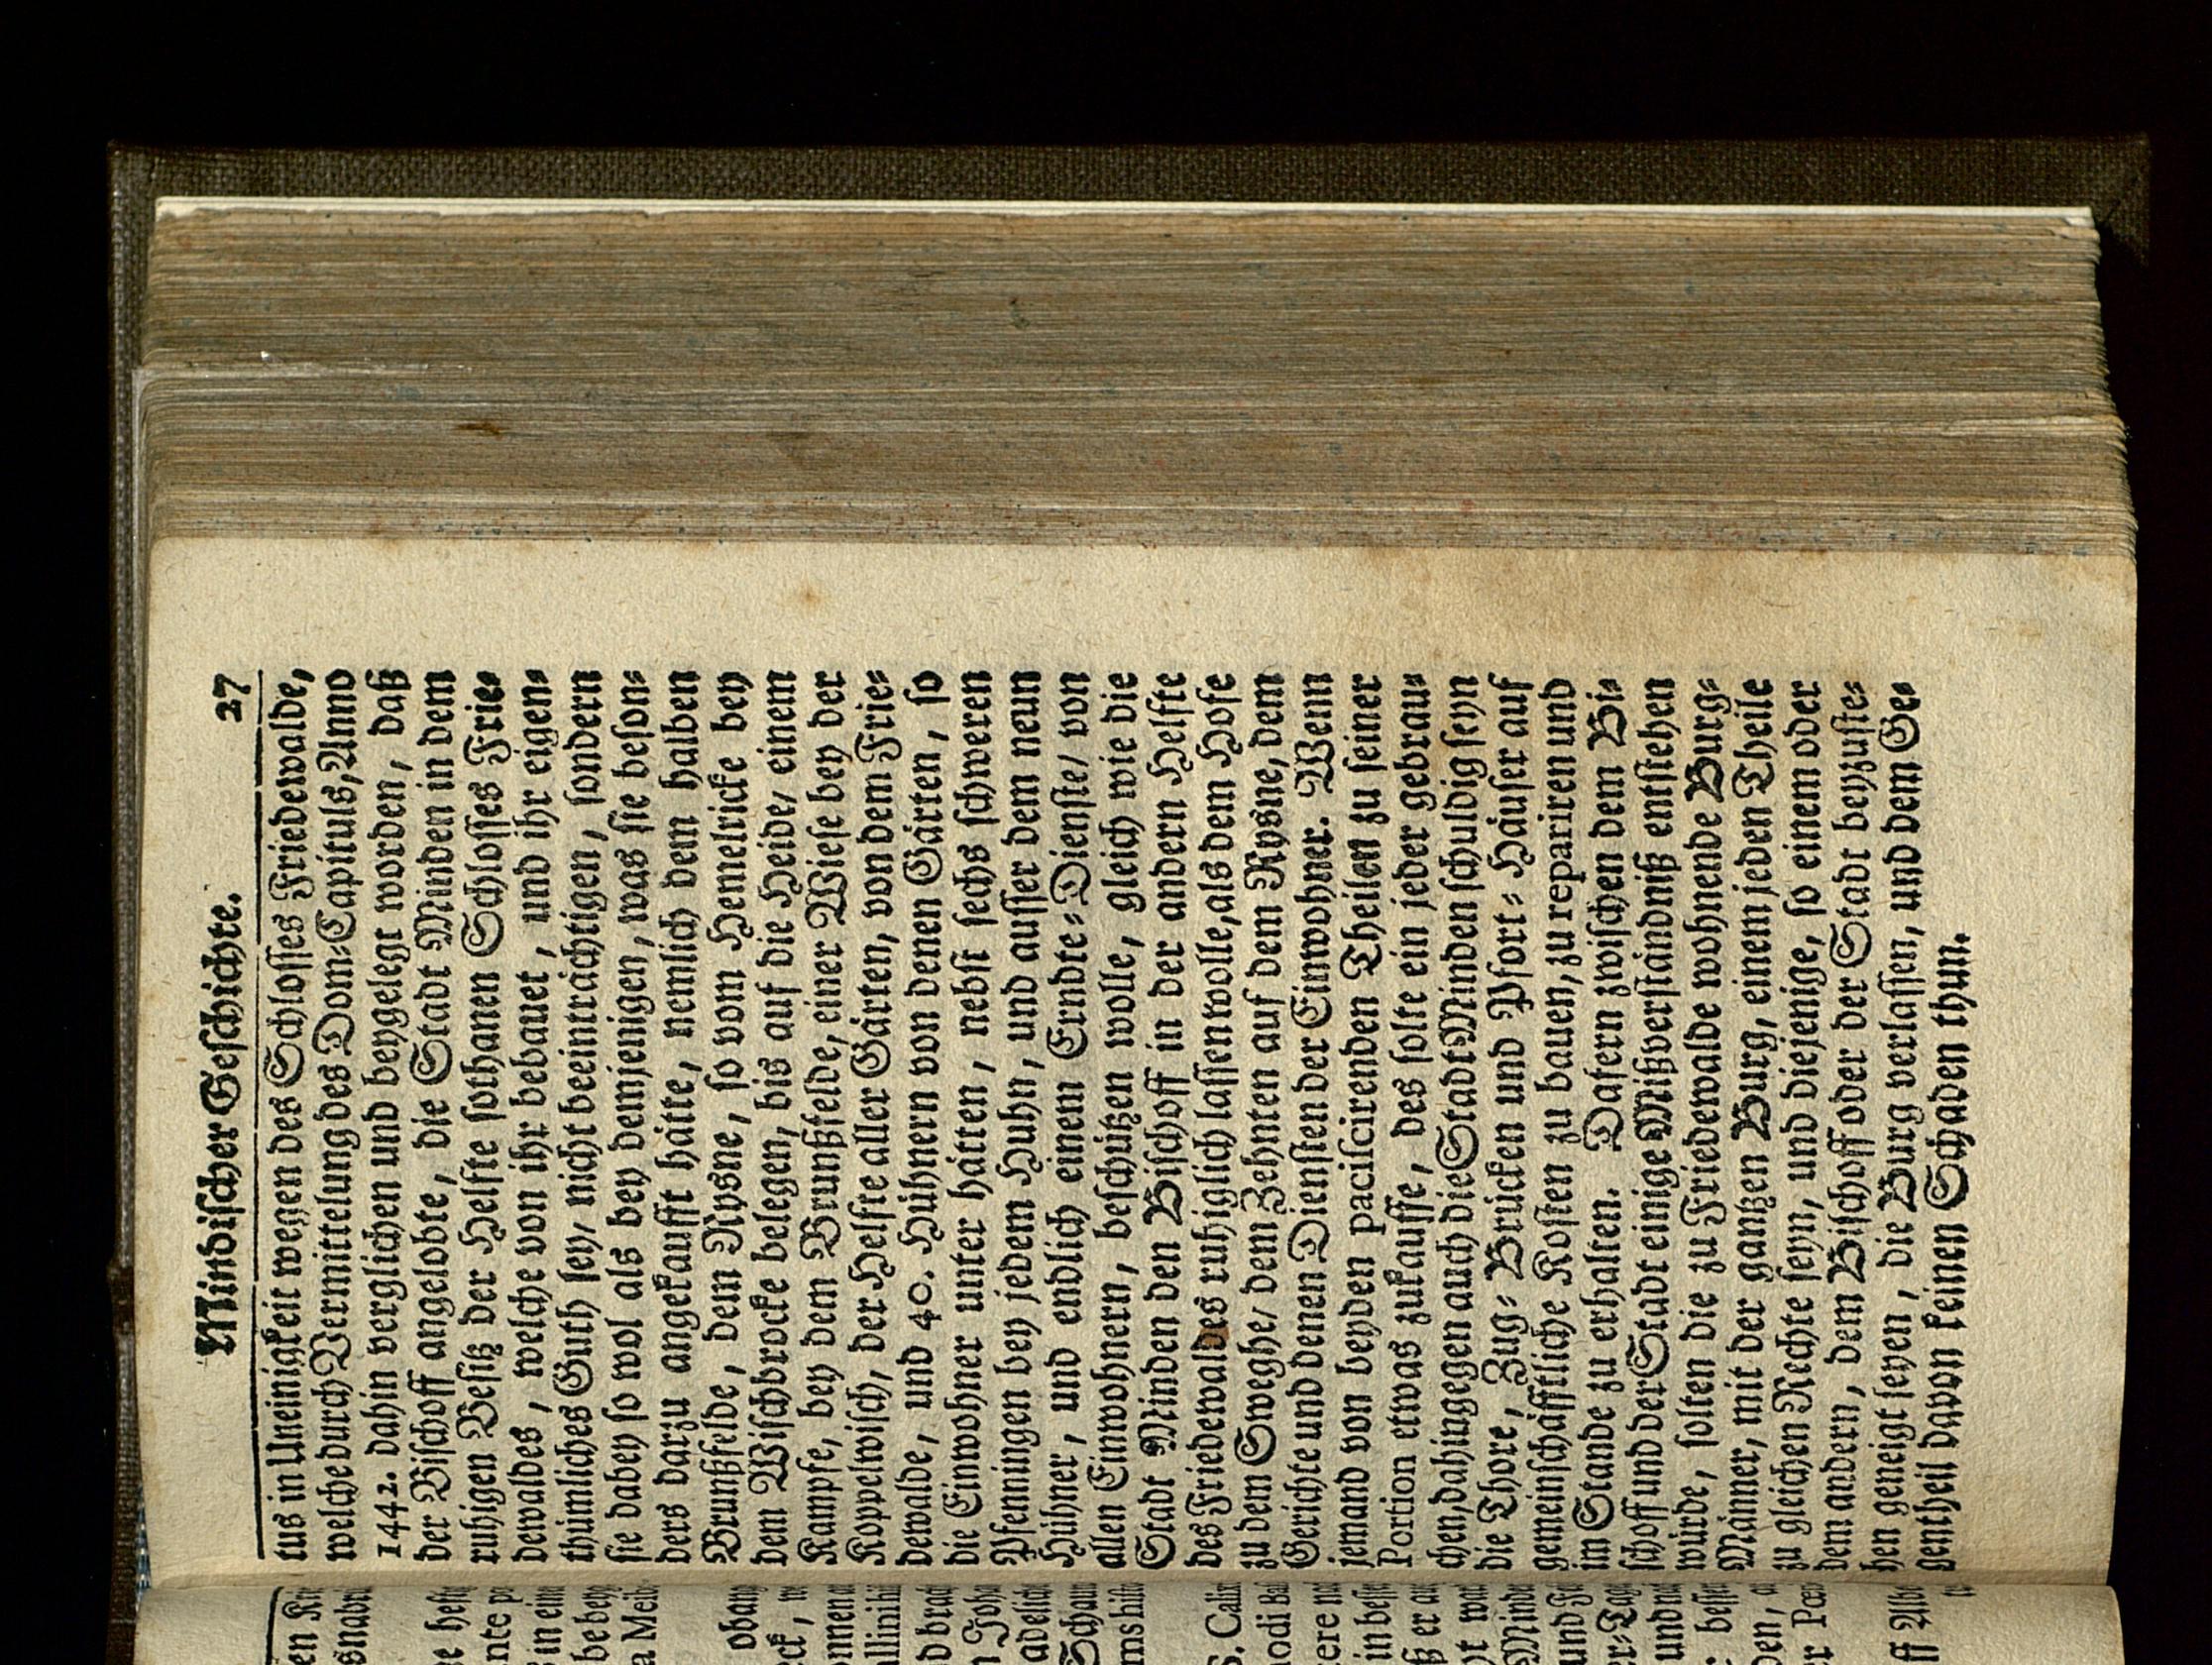 Mindischer Geschichte. 27
tus in Uneinigkeit wegen des Schlosses Friedewalde,
welche durch Vermittelung des Dom-Capituls, Anno
1442. dahin verglichen und beygelegt worden, daß
der Bischoff angelobte, die Stadt Minden in dem
ruhigen Besitz der Helfte sothanen Schlosses Frie-
dewaldes, welche von ihr bebauet, und ihr eigen-
thümliches Guth sey, nicht beeinträchtigen, sondern
sie dabey so wol als bey demjenigen, was sie beson-
ders darzu angekaufft hätte, nemlich dem halben
Brunßfelde, dem Rysne, so vom Hemelricke bey
dem Wischbrocke belegen, bis auf die Heide, einem
Kampfe, bey dem Brunßfelde, einer Wiese bey der
Koppelwisch, der Helfte aller Gärten, von dem Frie-
dewalde, und 40. Hühnern von denen Gärten, so
die Einwohner unter hätten, nebst sechs schweren
Pfenningen bey jedem Huhn, und ausser dem neun
Hühner, und endlich einem Erndte-Dienste, von
allen Einwohnern, beschützen wolle, gleich wie die
Stadt Minden den Bischoff in der andern Helfte
des Friedewaldes ruhiglich lassen wolle, als dem Hofe
zu dem Sweghe, dem Zehnten auf dem Rysne, dem
Gerichte und denen Diensten der Einwohner. Wenn
jemand von beyden paciscirenden Theilen zu seiner
Portion etwas zukauffe, des solte ein jeder gebrau-
chen, dahingegen auch die Stadt Minden schuldig seyn
die Thore, Zug-Brücken und Pfort-Häuser auf
gemeinschäfftliche Kosten zu bauen, zu repariren und
im Stande zu erhalten. Dafern zwischen dem Bi-
schoff und der Stadt einige Mißverständniß entstehen
würde, solten die zu Friedewalde wohnende Burg-
Männer, mit der gantzen Burg, einem jeden Theile
zu gleichen Rechte seyn, und diejenige, so einem oder
dem andern, dem Bischoff oder der Stadt beyzuste-
hen geneigt seyen, die Burg verlassen, und dem Ge-
gentheil davon keinen Schaden thun.